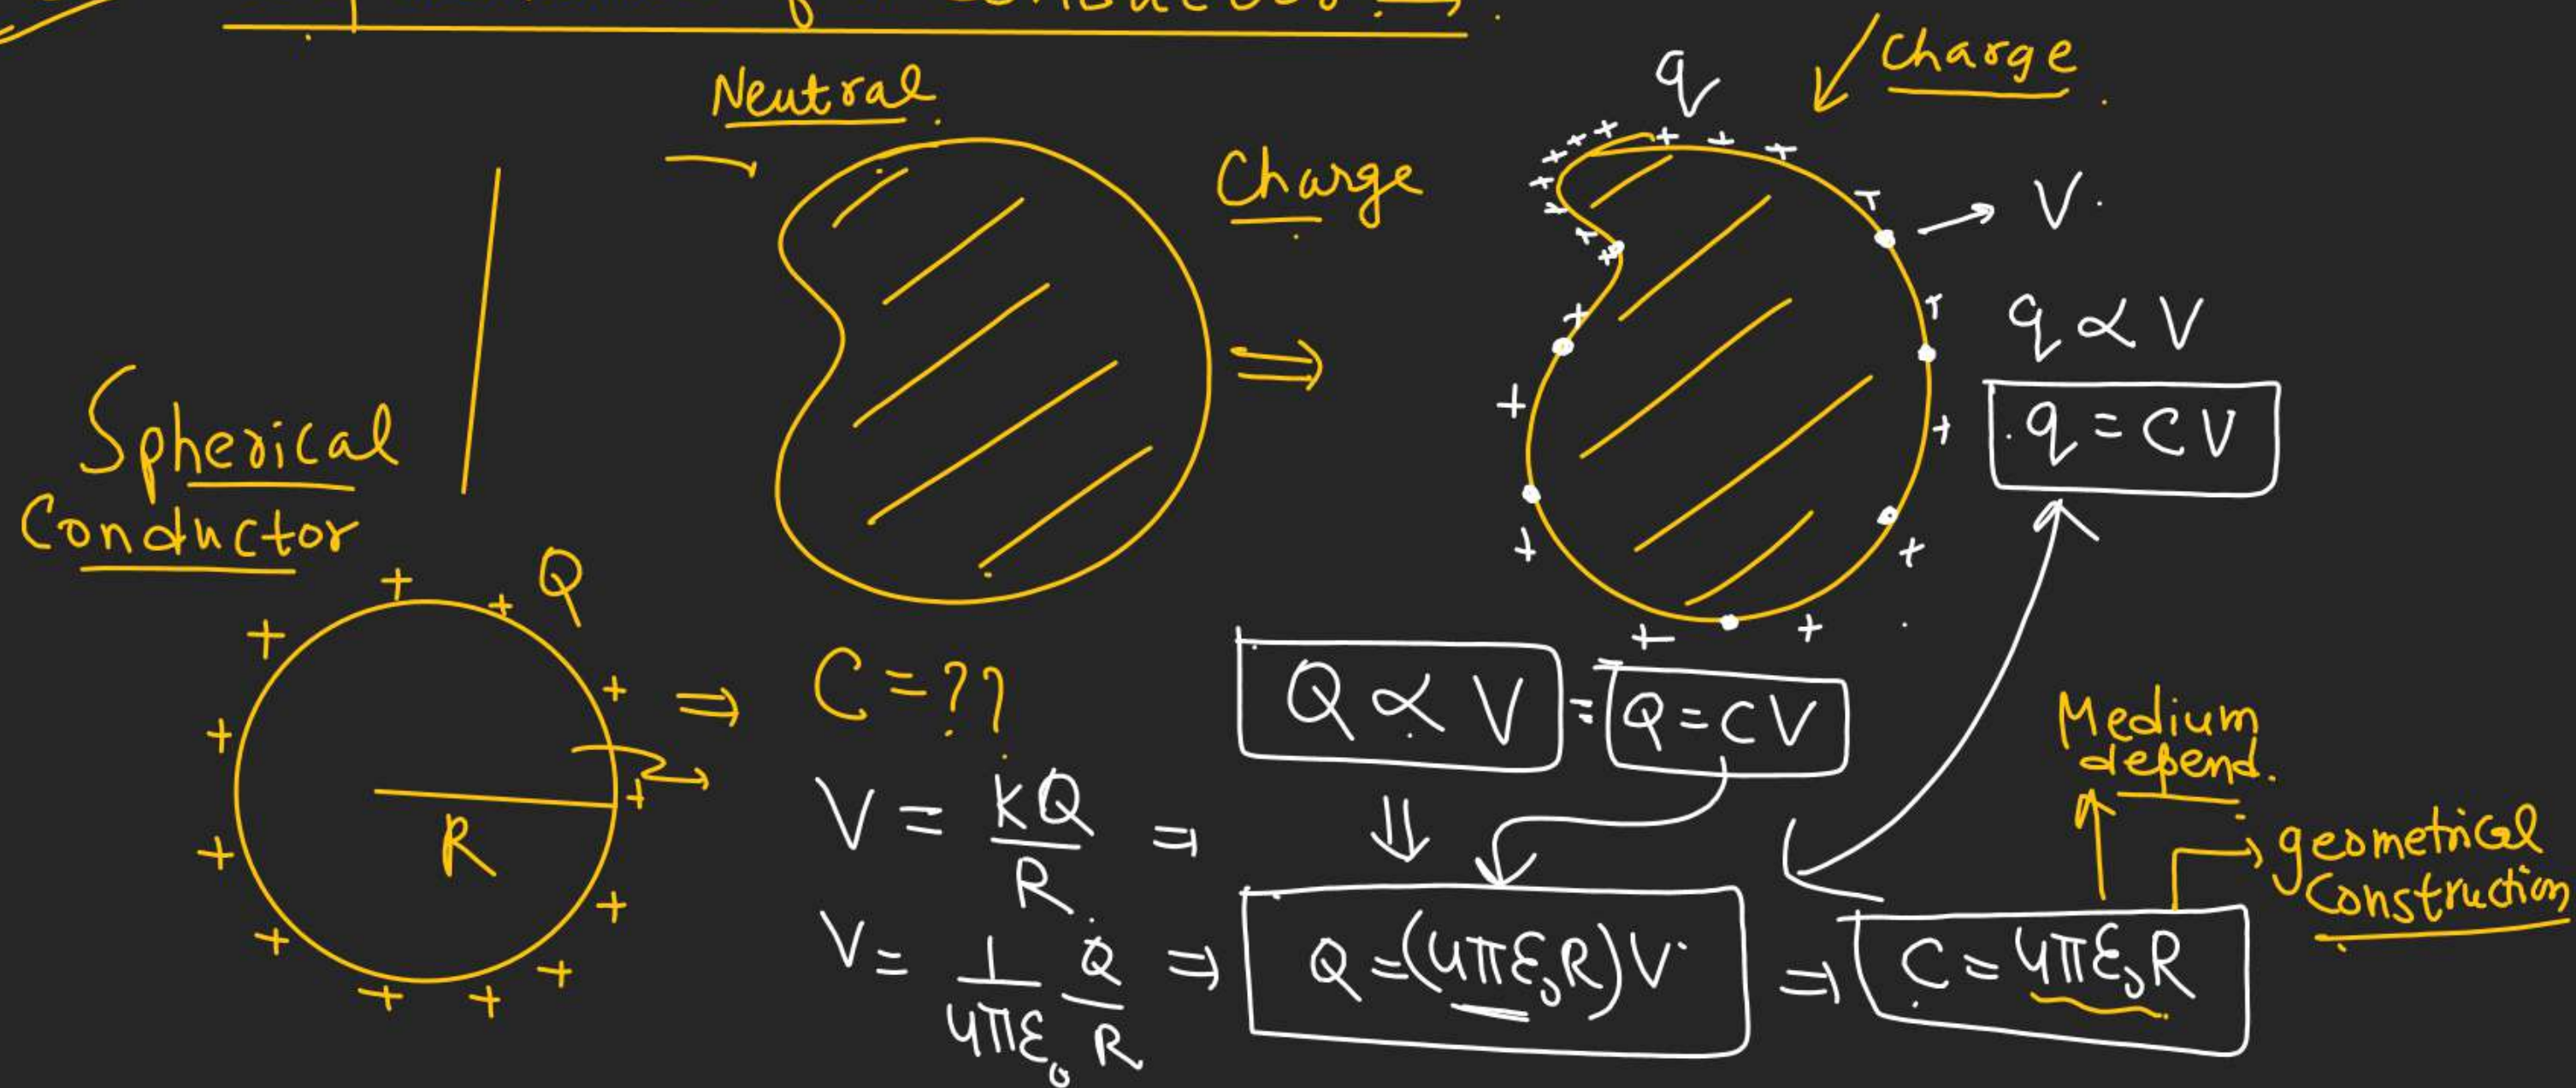 Neutral
Charge
q
Charge
V.
q ∝ V
q = CV
Spherical
Conductor
Q
R
C = ??
Q ∝ V = Q = CV
V = kQ/R ⇒
V = 1/4πε₀ Q/R ⇒ Q = (4πε₀R)V ⇒ C = 4πε₀R
Medium
depend.
geometrical
Construction